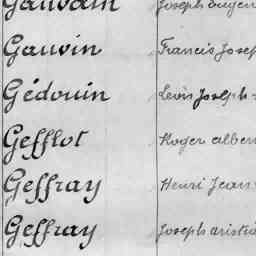 Gauvain Joseph Eugèn
Gauvin Francis Josep
Gédouin Louis Joseph
Gefflot Roger Alber
Geffray Henri Jean
Geffray Joseph Aristi